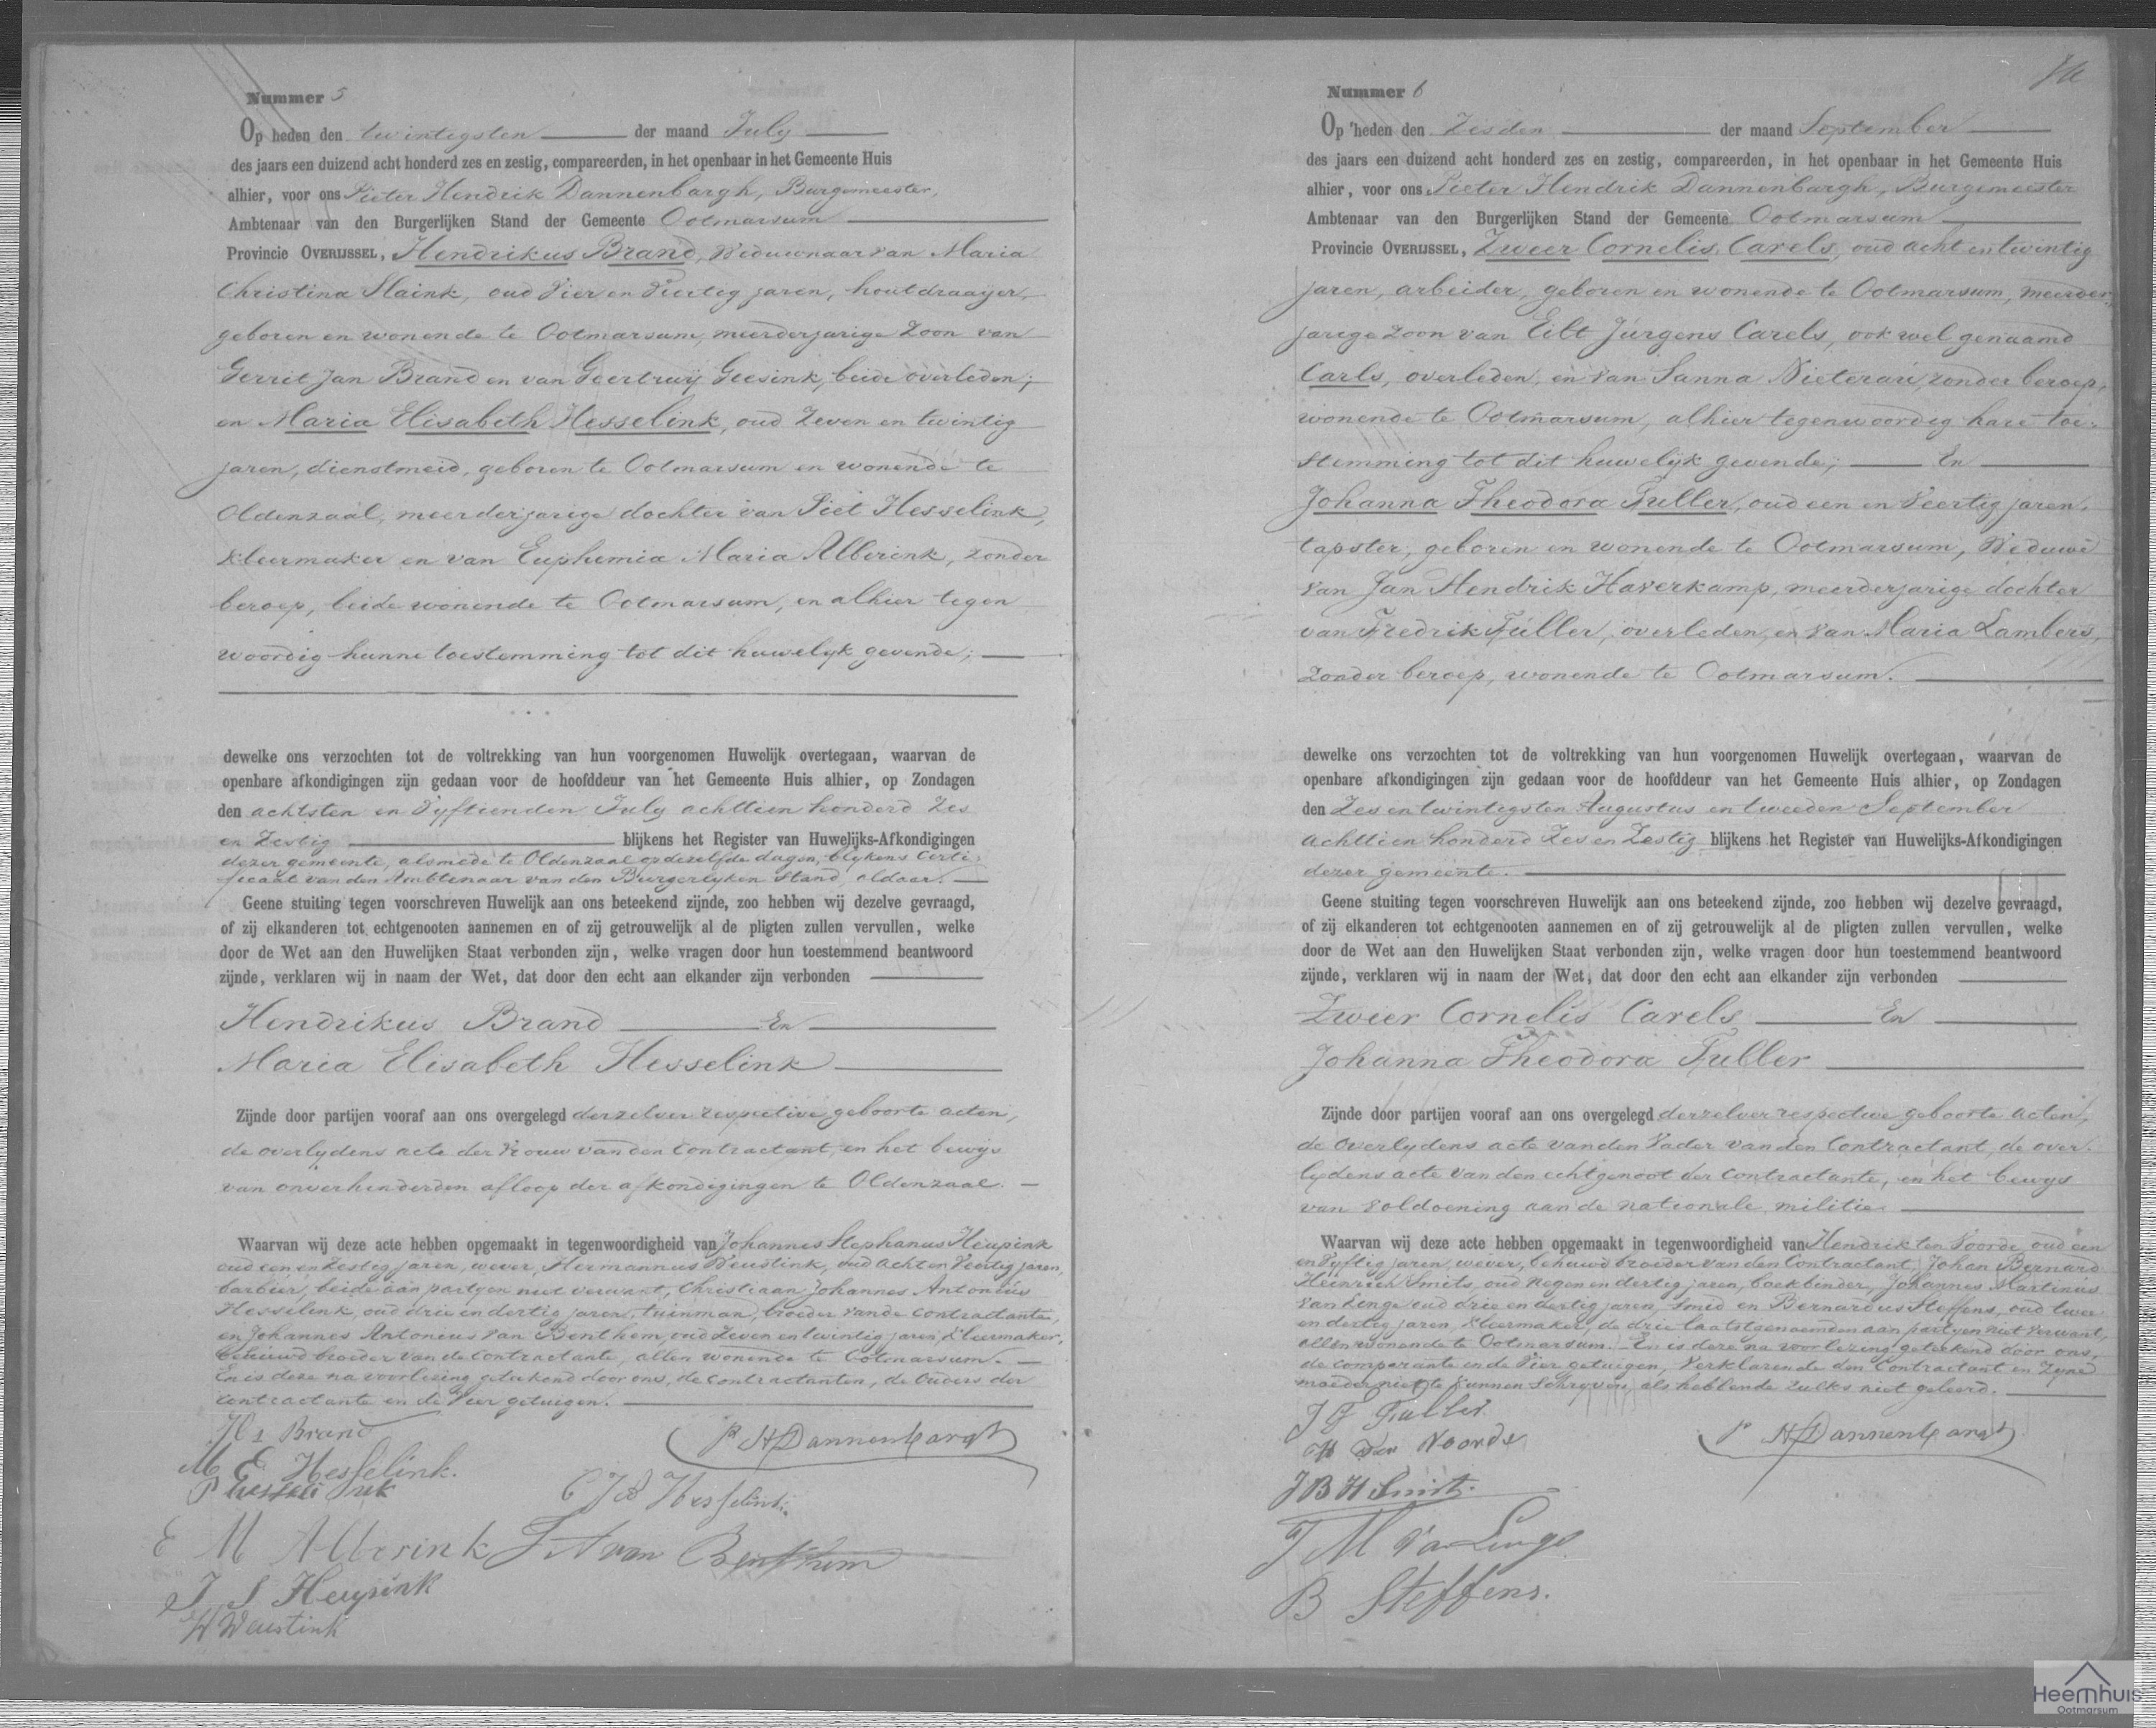 Nummer 5
Op heden den twintigsten der maand July
des jaars een duizend acht honderd zes en zestig, compareerden, in het openbaar in het Gemeente Huis
alhier, voor ons Pieter Hendrik Dannenbargh, Burgemeester,
Ambtenaar van den Burgerlijken Stand der Gemeente Ootmarsum
Provincie OVERIJSSEL, Hendrikus Brand, Weduwnaar van Maria
Christina Haink, oud Vier en Veertig jaren, houtdraayer,
geboren en wonende te Ootmarsum, meerderjarige Zoon van
Gerrit Jan Brand en van Geertruij Geesink, beide overleden;
en Maria Elisabeth Hesselink, oud Zeven en twintig
jaren, dienstmeid, geboren te Ootmarsum en wonende te
Oldenzaal, meerderjarige dochter van Piet Hesselink,
kleermaker en van Euphemia Maria Alberink, zonder
beroep, beide wonende te Ootmarsum, en alhier tegen
woordig hunne toestemming tot dit huwelyk gevende;
dewelke ons verzochten tot de voltrekking van hun voorgenomen Huwelijk overtegaan, waarvan de
openbare afkondigingen zijn gedaan voor de hoofddeur van het Gemeente Huis alhier, op Zondagen
den achtsten en Vyftienden July achttien honderd Zes
en Zestig blijkens het Register van Huwelijks-Afkondigingen
dezer gemeente, alsmede te Oldenzaal op dezelfde dagen, blykens Certi-
ficaat van den Ambtenaar van den Burgerlyken Stand, aldaar.
Geene stuiting tegen voorschreven Huwelijk aan ons beteekend zijnde, zoo hebben wij dezelve gevraagd,
of zij elkanderen tot echtgenooten aannemen en of zij getrouwelijk al de pligten zullen vervullen, welke
door de Wet aan den Huwelijken Staat verbonden zijn, welke vragen door hun toestemmend beantwoord
zijnde, verklaren wij in naam der Wet, dat door den echt aan elkander zijn verbonden
Hendrikus Brand En
Maria Elisabeth Hesselink
Zijnde door partijen vooraf aan ons overgelegd derzelver respective geboorte acten,
de overlydens acte der Vrouw van den Contractant, en het bewys
van onverhinderden afloop der afkondigingen te Oldenzaal.
Waarvan wij deze acte hebben opgemaakt in tegenwoordigheid van Johannes Stephanus Heupink
oud een en Zestig jaren, wever, Hermannus Weustink, oud acht en Veertig jaren,
barbier, beide aan partyen niet verwant, Christiaan Johannes Antonius
Hesselink, oud drie en dertig jaren, tuinman, broeder van de contractante,
en Johannes Antonius van Benthem, oud Zeven en twintig jaren, kleermaker,
behuwd broeder van de Contractante, allen wonende te Ootmarsum.
En is deze na voorlezing geteekend door ons, de contractanten, de Ouders der
contractante en de Vier getuigen.
Hs Brand
P H Dannenbargh
M E Hesselink.
P Hesselink
C J A Hesselink
E M Alberink
J A van Benthem
J S Heupink
H Weustink
Nummer 6
Op heden den Zesden der maand September
des jaars een duizend acht honderd zes en zestig, compareerden, in het openbaar in het Gemeente Huis
alhier, voor ons Pieter Hendrik Dannenbargh, Burgemeester
Ambtenaar van den Burgerlijken Stand der Gemeente Ootmarsum
Provincie OVERIJSSEL, Zweer Cornelis Carels, oud acht en twintig
jaren, arbeider, geboren en wonende te Ootmarsum, meerder-
jarige Zoon van Eilt Jurgens Carels, ook wel genaamd
Carls, overleden, en van Sanna Nieterau, zonder beroep,
wonende te Ootmarsum, alhier tegenwoordig hare toe-
stemming tot dit huwelyk gevende; En
Johanna Theodora Fuller, oud een en Veertig jaren,
tapster, geboren en wonende te Ootmarsum, Weduwe
van Jan Hendrik Haverkamp, meerderjarige dochter
van Fredrik Fuller, overleden, en van Maria Lambers,
zonder beroep, wonende te Ootmarsum.
dewelke ons verzochten tot de voltrekking van hun voorgenomen Huwelijk overtegaan, waarvan de
openbare afkondigingen zijn gedaan voor de hoofddeur van het Gemeente Huis alhier, op Zondagen
den Zes en twintigsten Augustus en tweeden September
achttien honderd Zes en Zestig blijkens het Register van Huwelijks-Afkondigingen
dezer gemeente.
Geene stuiting tegen voorschreven Huwelijk aan ons beteekend zijnde, zoo hebben wij dezelve gevraagd,
of zij elkanderen tot echtgenooten aannemen en of zij getrouwelijk al de pligten zullen vervullen, welke
door de Wet aan den Huwelijken Staat verbonden zijn, welke vragen door hun toestemmend beantwoord
zijnde, verklaren wij in naam der Wet, dat door den echt aan elkander zijn verbonden
Zwier Cornelis Carels En
Johanna Theodora Fuller
Zijnde door partijen vooraf aan ons overgelegd derzelver respective geboorte acten,
de overlydens acte van den Vader van den Contractant, de over-
lydens acte van den echtgenoot der contractante, en het bewys
van Voldoening aan de nationale militie.
Waarvan wij deze acte hebben opgemaakt in tegenwoordigheid van Hendrik ten Voorde, oud een
en Vyftig jaren, wever, behuwd broeder van den Contractant, Johan Bernard
Heinrich Smits, oud negen en dertig jaren, boekbinder, Johannes Martinus
van Lenge oud drie en dertig jaren, Smid en Bernardus Steffens, oud twee
en dertig jaren, kleermaker, de drie laatstgenoemden aan partyen niet verwant,
allen wonende te Ootmarsum. En is deze na voorlezing geteekend door ons,
de comparante en de Vier getuigen, Verklarende den Contractant en Zyne
moeder niet te kunnen Schryven, als hebbende zulks niet geleerd.
J T Fuller
P H Dannenbargh
H ten Voorde
J B H Smit.
J M van Lenge
B Steffens.
Heemhuis
Ootmarsum